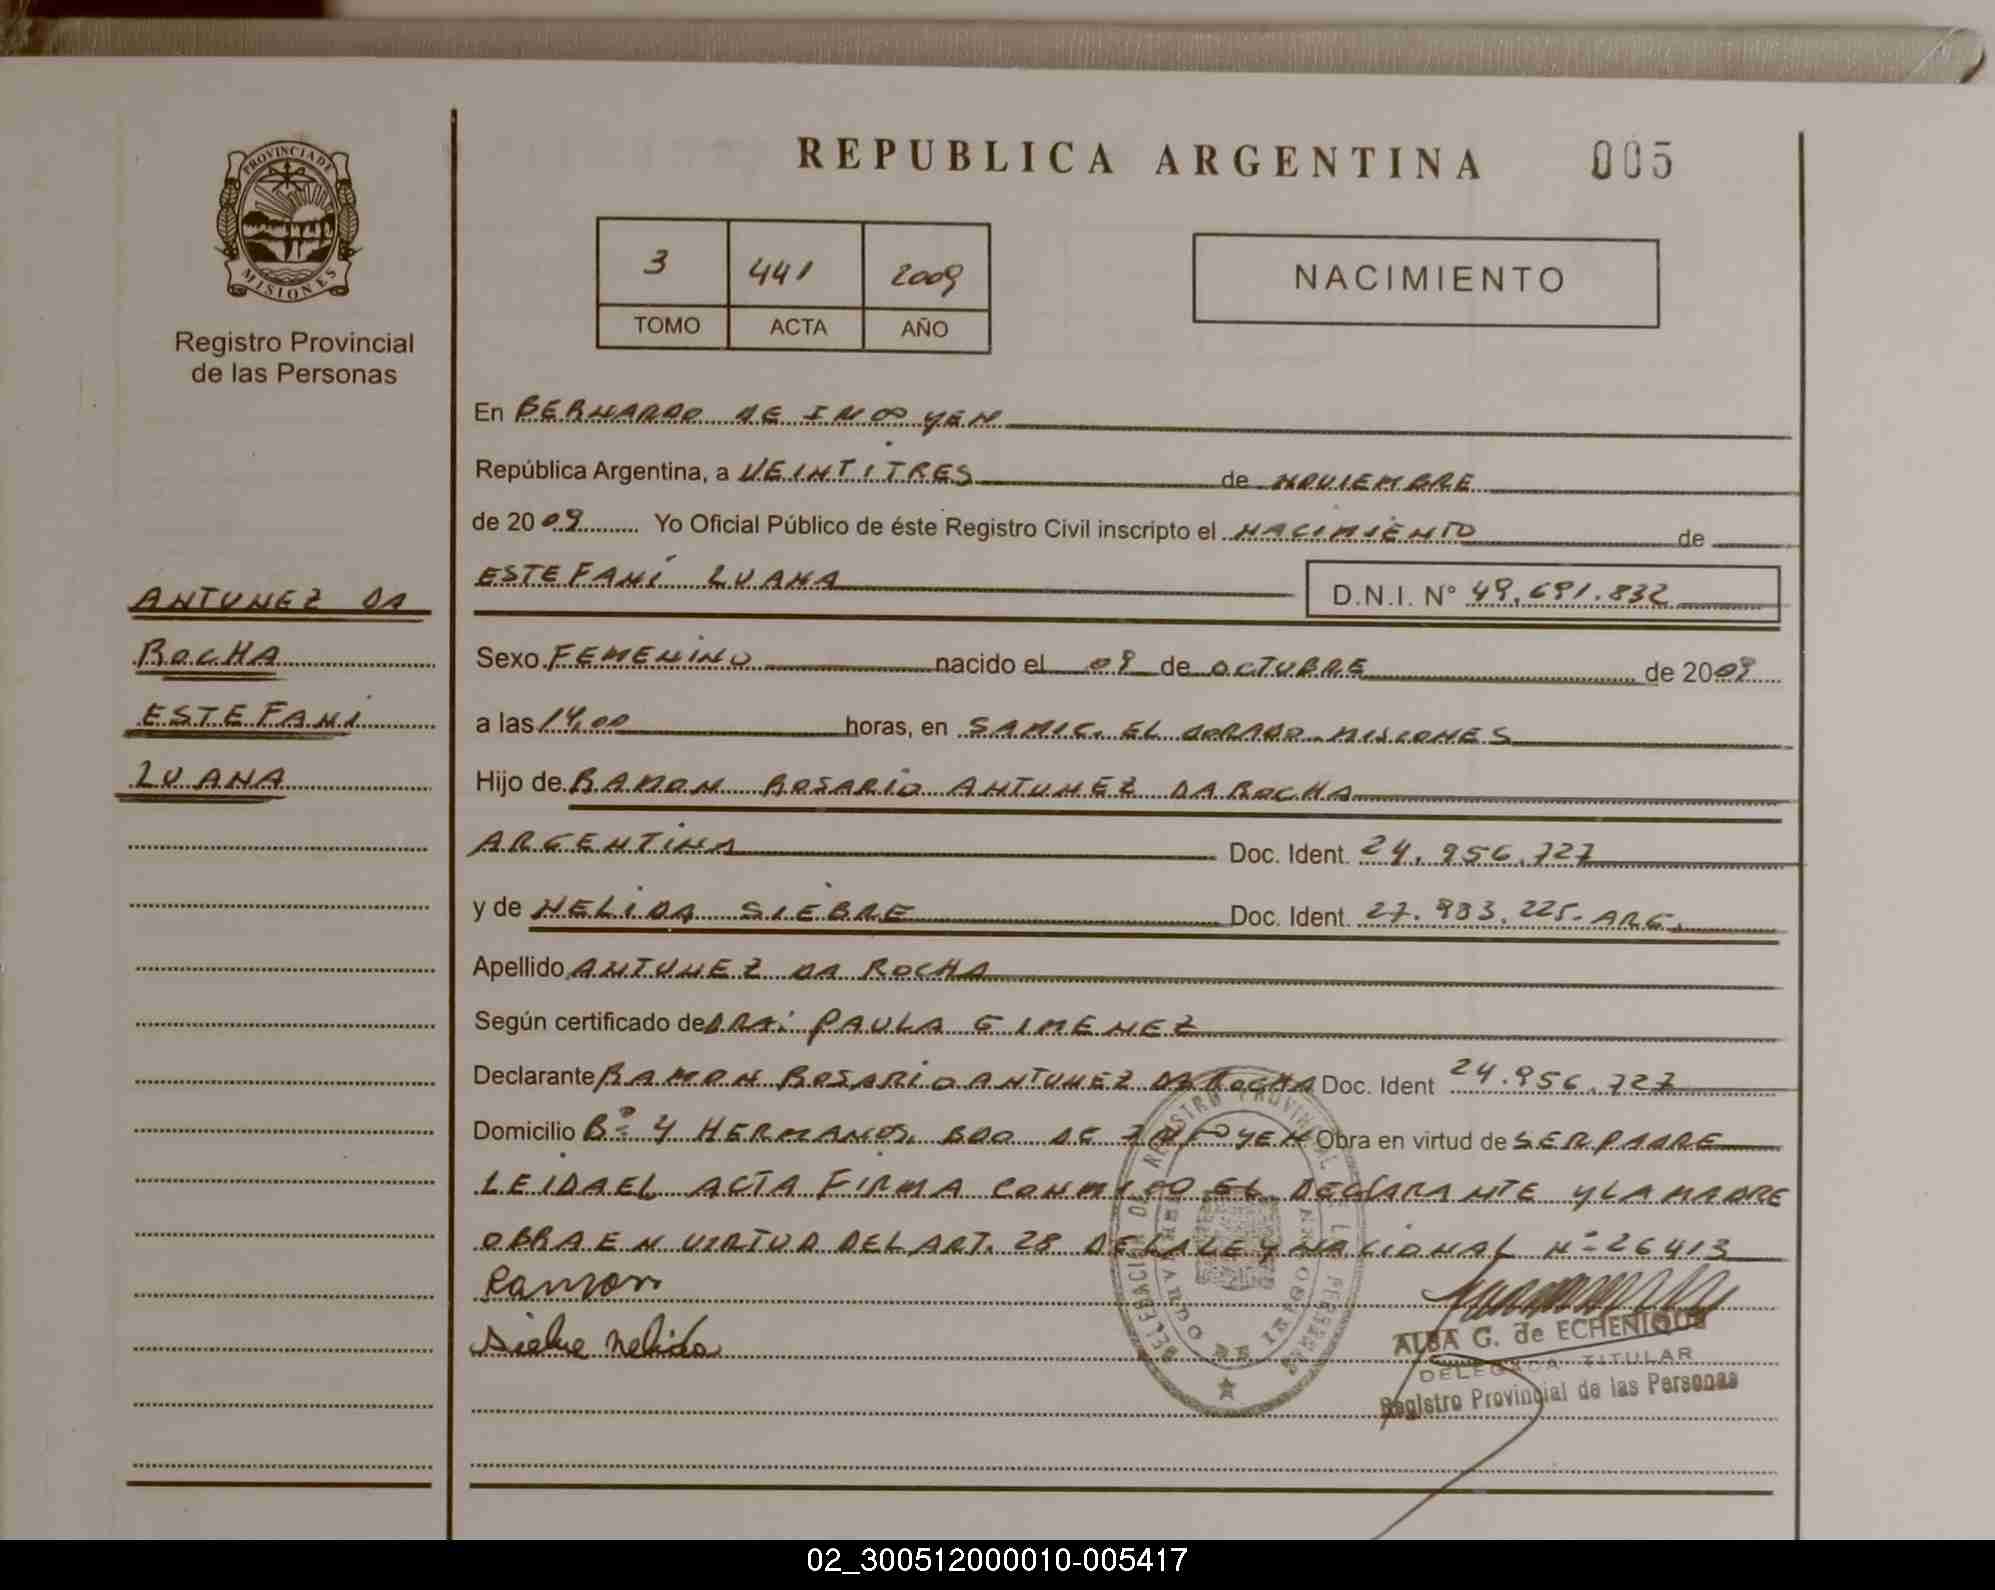 REPUBLICA ARGENTINA 005
PROVINCIA DE
MISIONES
Registro Provincial
de las Personas
3 441 2009
TOMO ACTA AÑO
NACIMIENTO
En BERNARDO DE IRIGOYEN
República Argentina, a VEINTITRES de NOVIEMBRE
de 2009 Yo Oficial Público de éste Registro Civil inscripto el NACIMIENTO de
ESTEFANÍ LUANA D.N.I. N° 49.691.832
ANTUNEZ DA
ROCHA
ESTEFANÍ
LUANA
Sexo FEMENINO nacido el 09 de OCTUBRE de 2009
a las 14,00 horas, en SAMIC. EL DORADO. MISIONES
Hijo de RAMON ROSARIO ANTUNEZ DA ROCHA
ARGENTINA Doc. Ident. 24.956.727
y de NELIDA SIEBRE Doc. Ident. 27.983.225. ARG.
Apellido ANTUNEZ DA ROCHA
Según certificado de DRA: PAULA GIMENEZ
Declarante RAMON ROSARIO ANTUNEZ DA ROCHA Doc. Ident 24.956.727
Domicilio Bº 4 HERMANOS. BDO DE IRIGOYEN Obra en virtud de SER PADRE
LEIDA EL ACTA FIRMA CONMIGO EL DECLARANTE Y LA MADRE
OBRA EN VIRTUD DEL ART. 28 DE LA LEY NACIONAL Nº 26413
Ramon
Siebre Nelida
ALBA G. de ECHENIQUE
DELEGADA TITULAR
Registro Provincial de las Personas
02_300512000010-005417